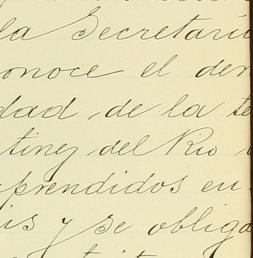 la Secretarí
onoce el der
dad, de la te
tinez del Rio
prendidos en
is y se obliga